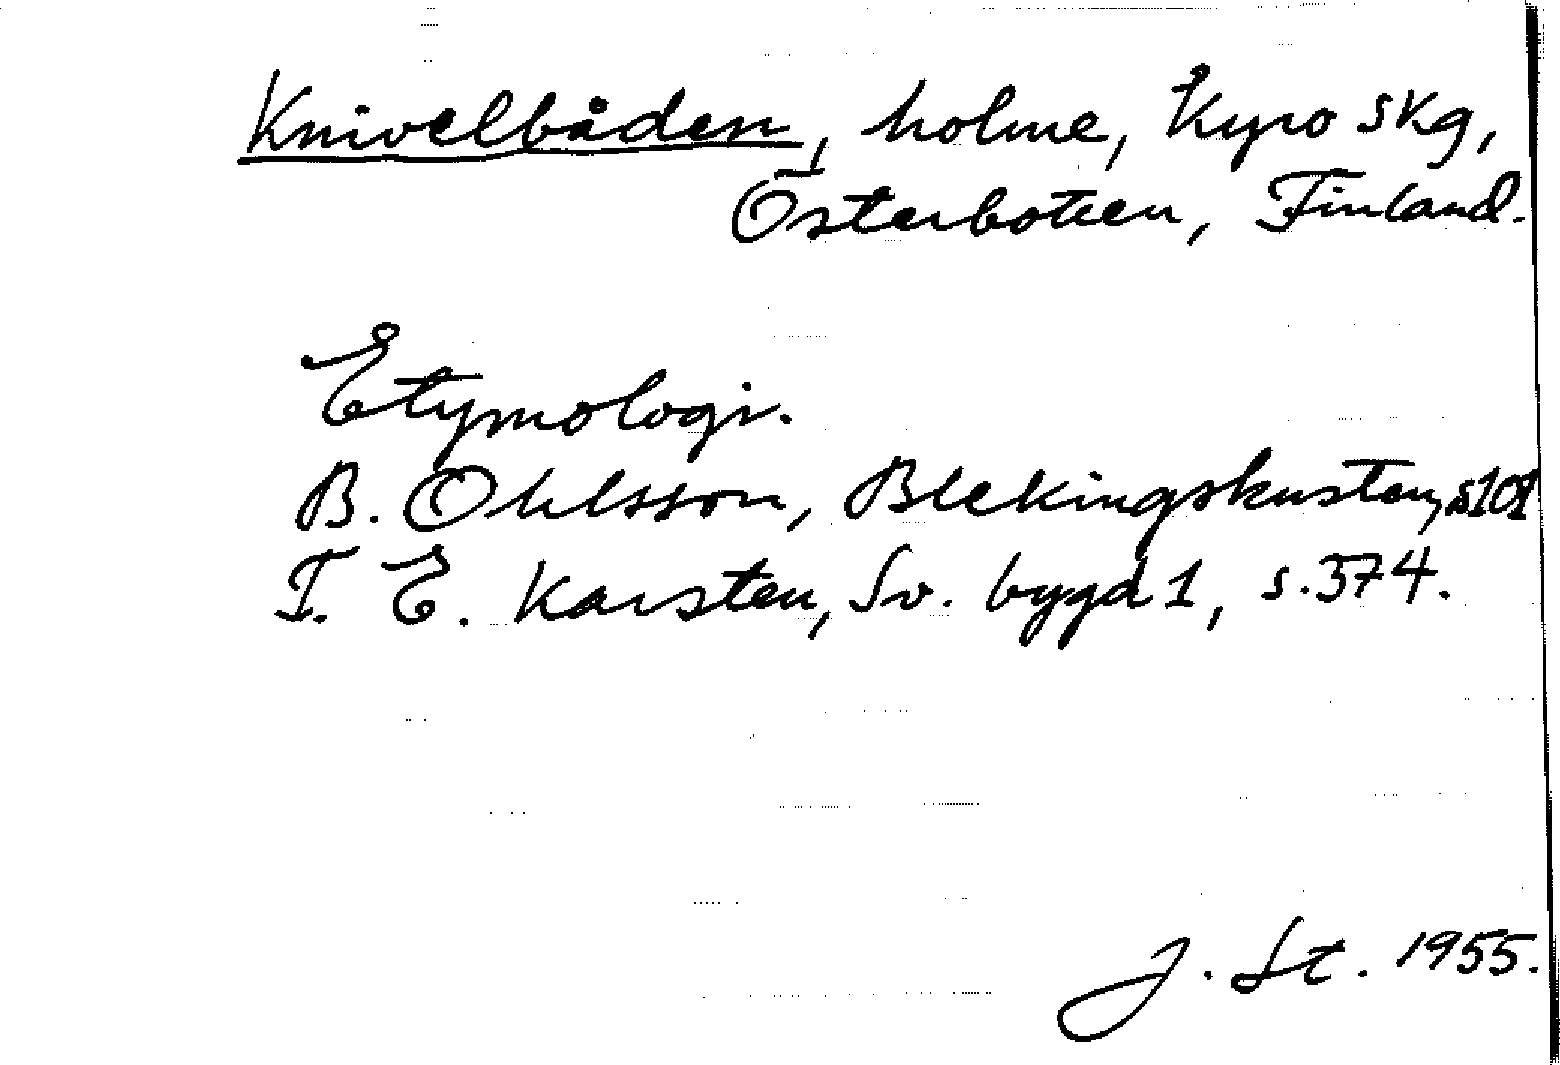 Knivelbåden, holme, Kyro skg,
Österbotten, Finland.
Etymologi.
B. Ohlsson, Blekingskusten, s 101
T. E. Karsten, Sv. bygd 1, s. 374.
J. St. 1955.